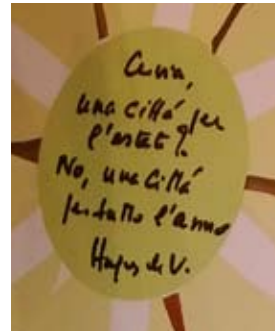 Cervia,
una città per
l'estate?
No, una città
per tutto l'anno